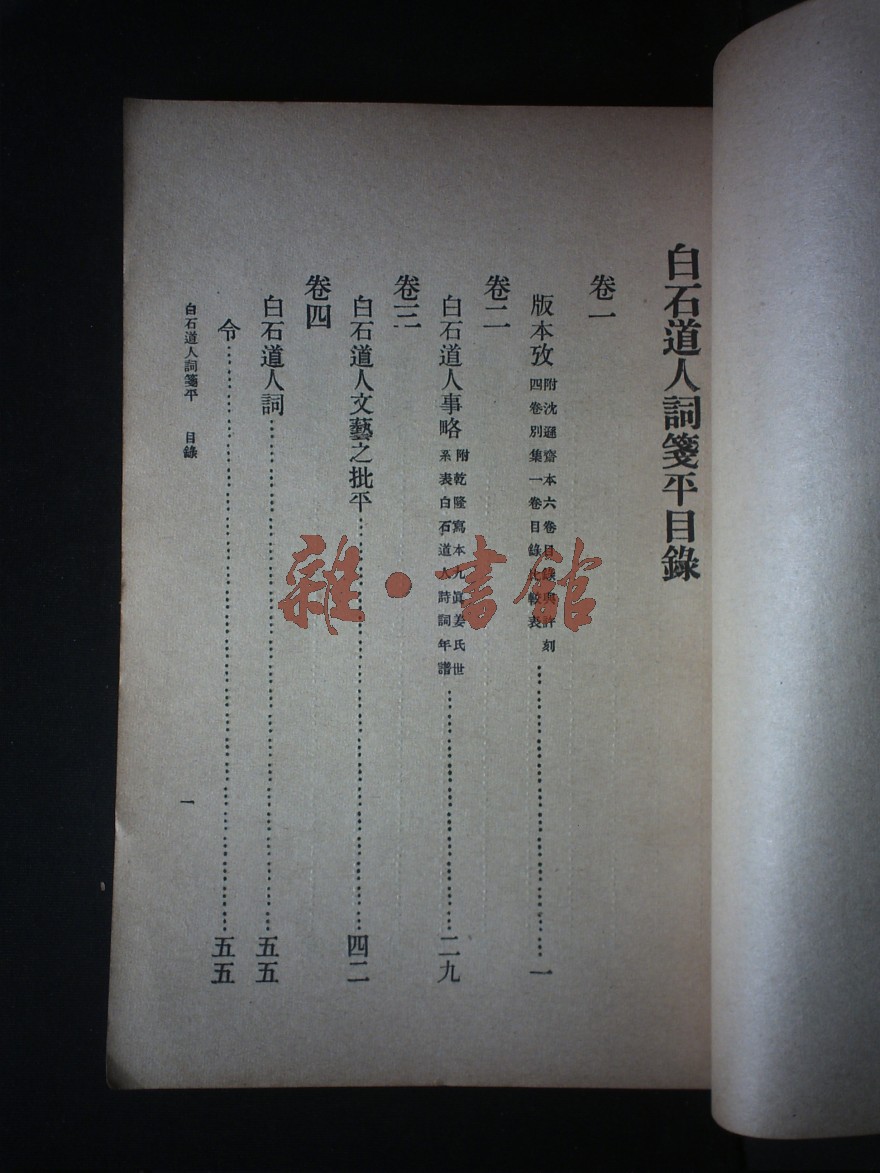 白石道人詞箋平目錄
卷一
版本攷 附沈遜齋本六卷目錄與許刻四卷別集一卷目錄比較表……一
卷二
白石道人事略 附乾隆寫本九眞姜氏世系表白石道人詩詞年譜……二九
卷三
白石道人文藝之批平……四二
卷四
白石道人詞……五五
令……五五
白石道人詞箋平 目錄
一
雜·書館